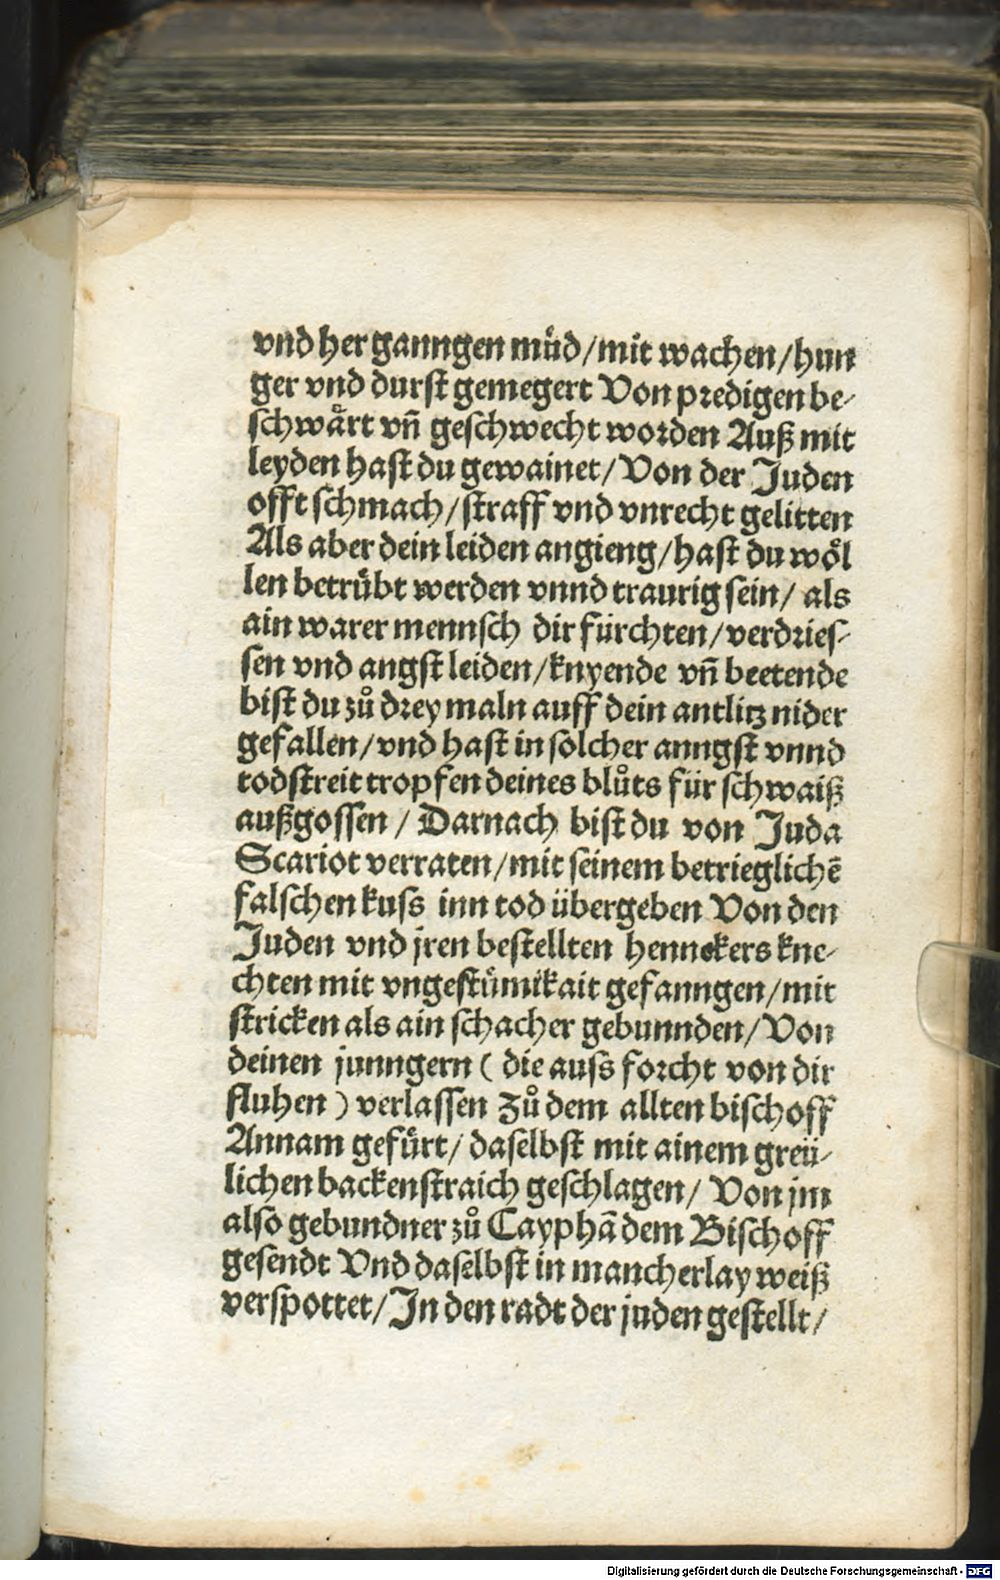 vnd her ganngen müd/mit wachen/hun
ger vnd durst gemegert Von predigen be-
schwärt vñ geschwecht worden Auß mit
leyden hast du gewainet/Von der Juden
offt schmach/straff vnd vnrecht gelitten
Als aber dein leiden angieng/hast du wöl
len betrübt werden vnnd traurig sein/ als
ain warer mennsch dir fürchten/verdries-
sen vnd angst leiden/knyende vñ beetende
bist du zů drey maln auff dein antlitz nider
gefallen/vnd hast in solcher anngst vnnd
todstreit tropfen deines blůts für schwaiß
außgossen / Darnach bist du von Juda
Scariot verraten/mit seinem betrieglichē
falschen kuss inn tod übergeben Von den
Juden vnd jren bestellten hennckers kne-
chten mit vngestümikait gefanngen/mit
stricken als ain schacher gebunnden/Von
deinen junngern ( die auss forcht von dir
fluhen ) verlassen Zů dem allten bischoff
Annam gefürt/ daselbst mit ainem greü-
lichen backenstraich geschlagen/ Von jm
also gebundner zů Cayphā dem Bischoff
gesendt Vnd daselbst in mancherlay weiß
verspottet/In den radt der juden gestellt/
Digitalisierung gefördert durch die Deutsche Forschungsgemeinschaft - DFG